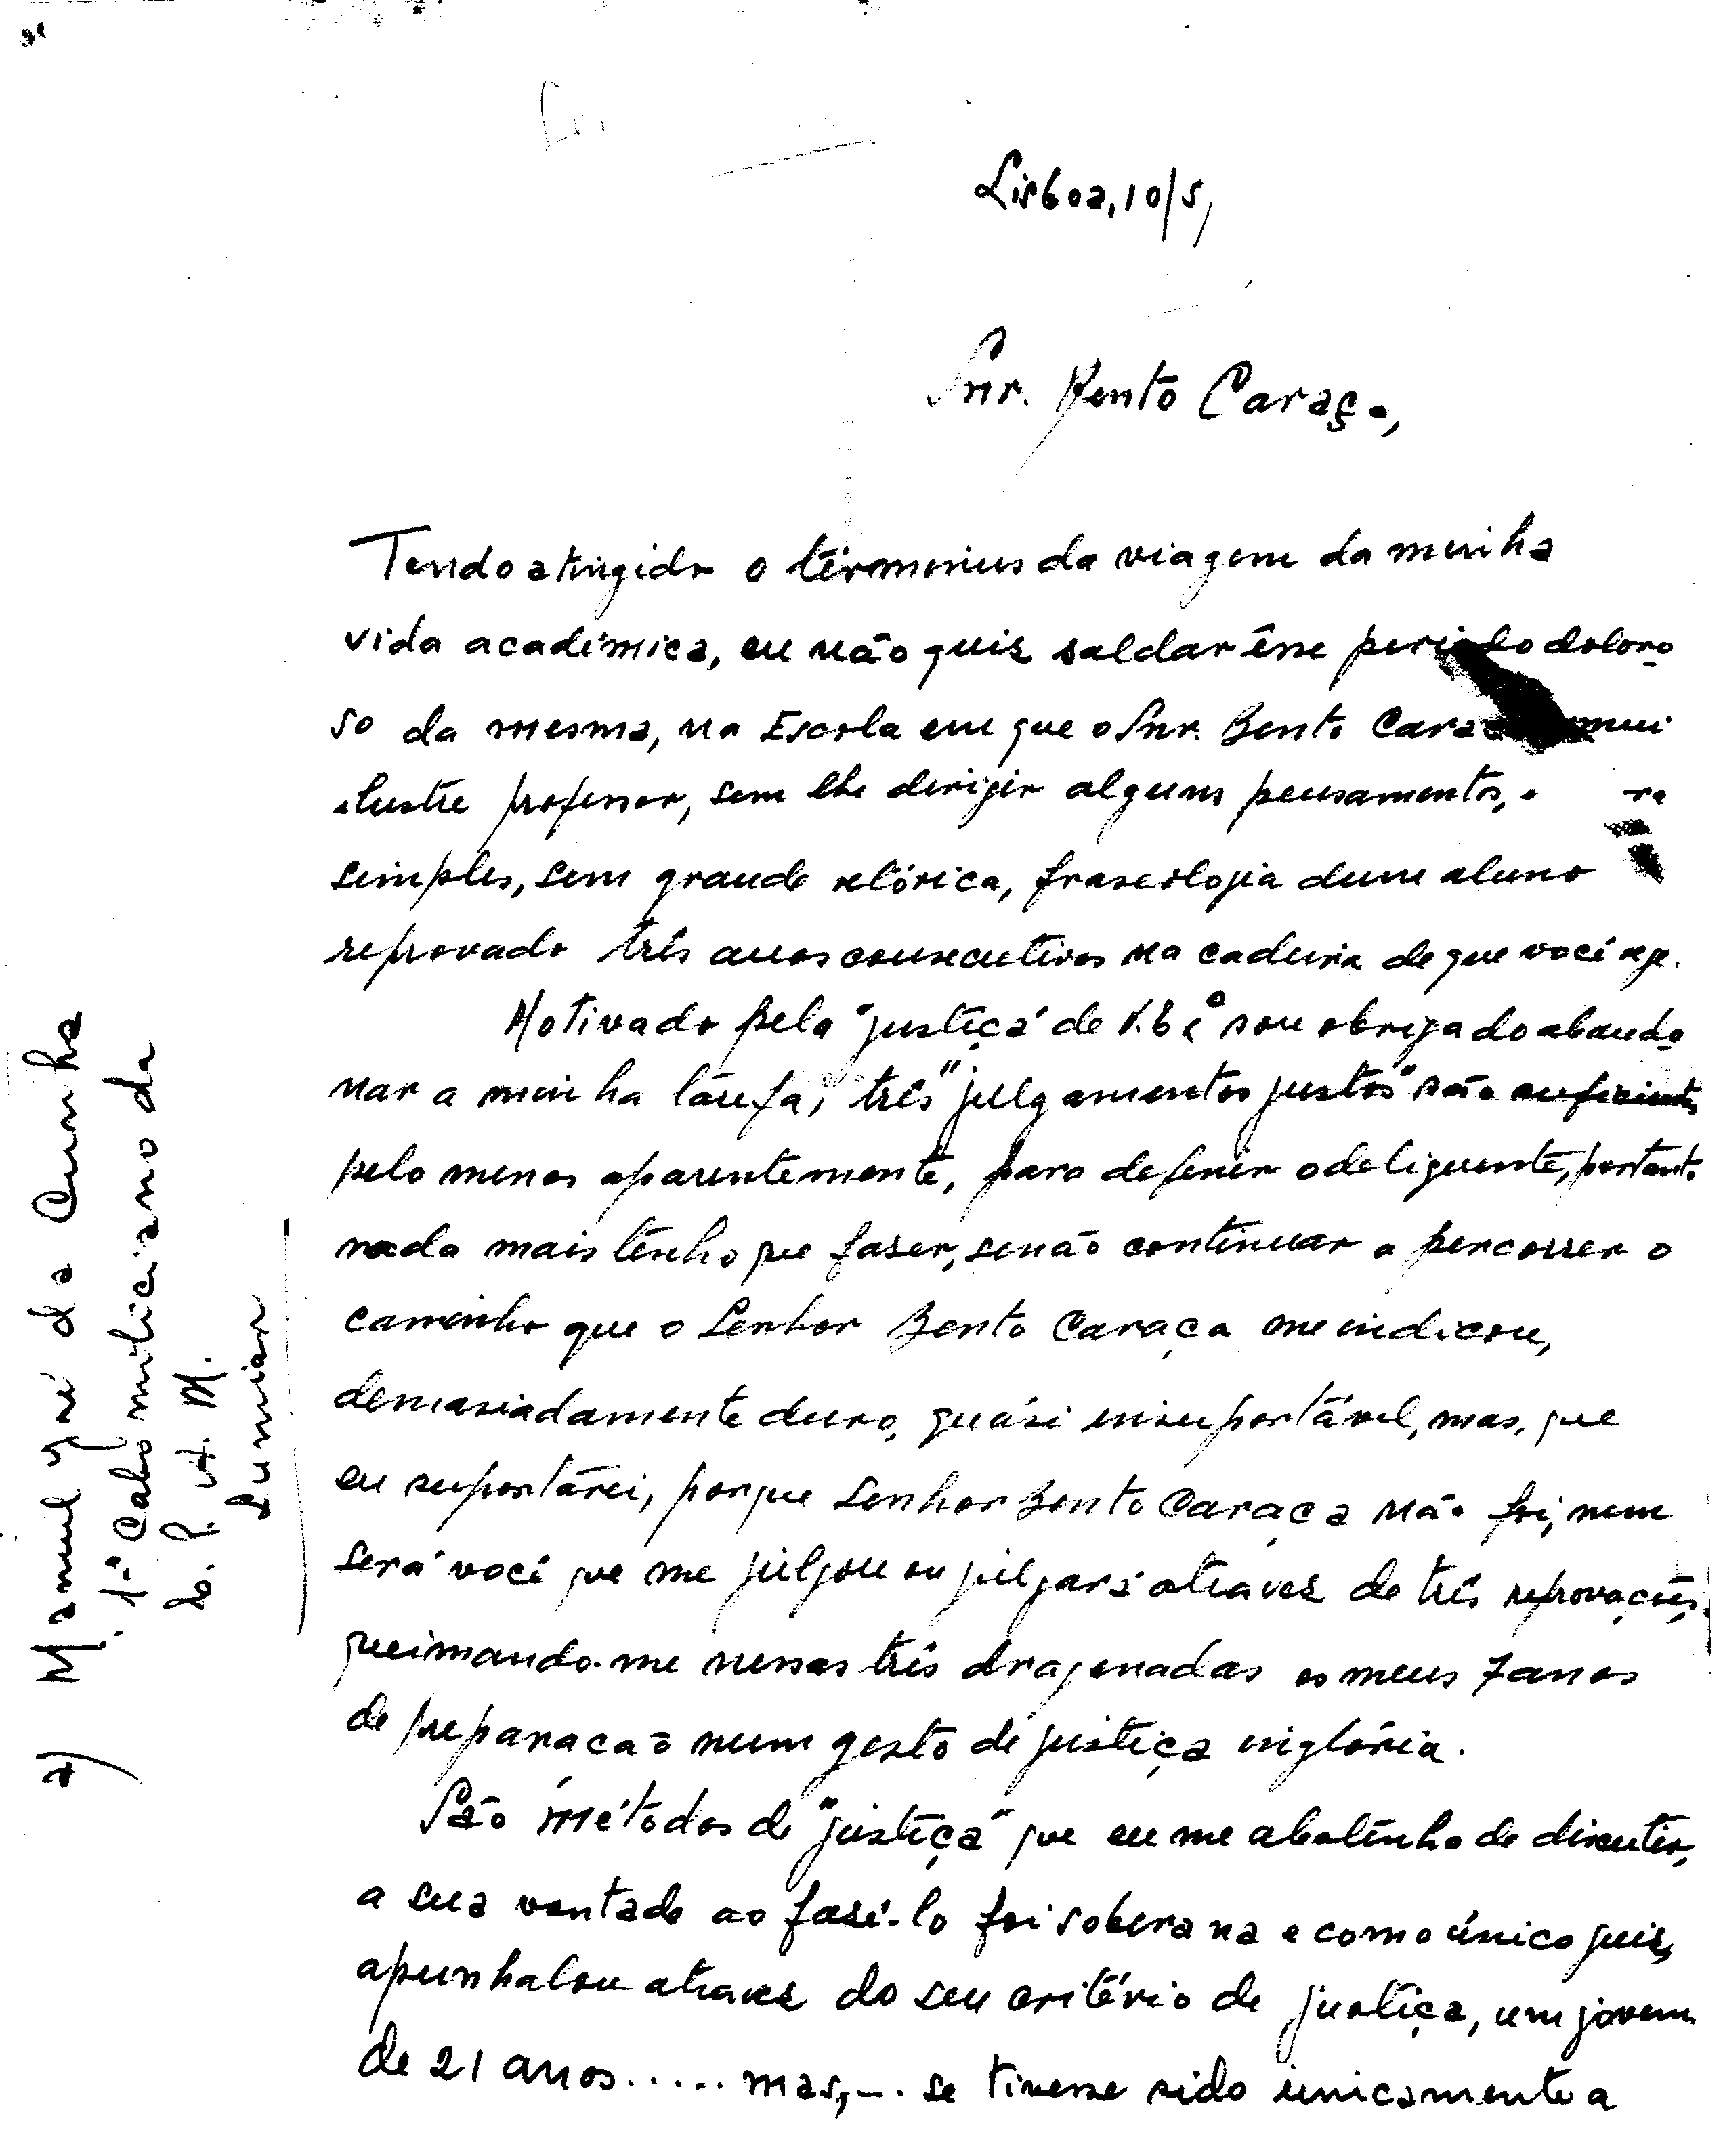 Lisboa, 10/5,
Snr. Bento Caraça,
Tendo atingido o términus da viagem da minha
vida académica, eu não quis saldar êsse periodo doloro
so da mesma, na Escola em que o Snr. Bento Caraça mui
ilustre professor, sem lhe dirigir alguns pensamentos,
simples, sem grande retórica, fraseologia dum aluno
reprovado três anos consecutivos na cadeira de que você rege.
Motivado pela "justiça" de sou obrigado abando
nar a minha tarefa, três "julgamentos justos" são suficientes
pelo menos aparentemente, para defenir o deliguente, portanto
nada mais tenho que faser, senão continuar a percorrer o
caminho que o Senhor Bento Caraça me indicou,
demasiadamente duro, quási insuportável, mas, que
eu suportárei, porque Senhor Bento Caraça não foi, nem
será você que me julgou ou julgará atraves de três reprovações,
queimando-me nessas três dragonadas os meus 7 anos
de preparação num gesto de justiça inglória.
São métodos de "justiça" que eu me abstenho de discutir,
a sua vontade ao fasê-lo foi soberana e como único juis,
apunhalou atraves do seu critério de justiça, um jovem
de 21 anos..... mas,-. se tivesse sido únicamente a
a) Manuel José da Cunha
1º Cabo miliciano da
E. P. A. M.
Lumiar